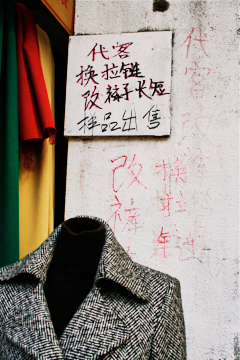 代客
换拉链
改裤子长短
样品出售
代客
换拉链
改裤